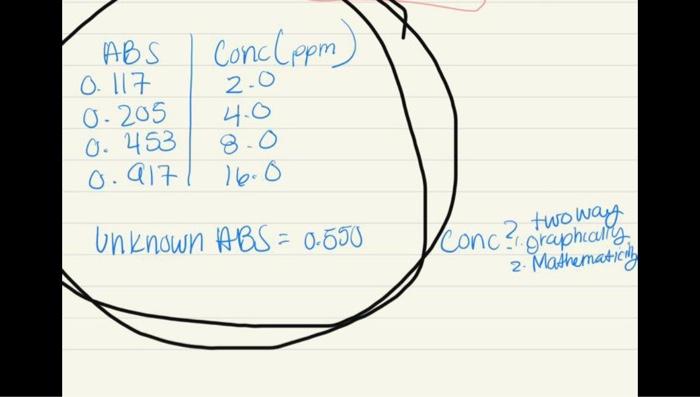 ABS Conc (ppm)
0.117 2.0
0.205 4.0
0.453 8.0
0.917 16.0
Unknown ABS = 0.550
Conc? two way
1. graphically.
2. Mathematicilly